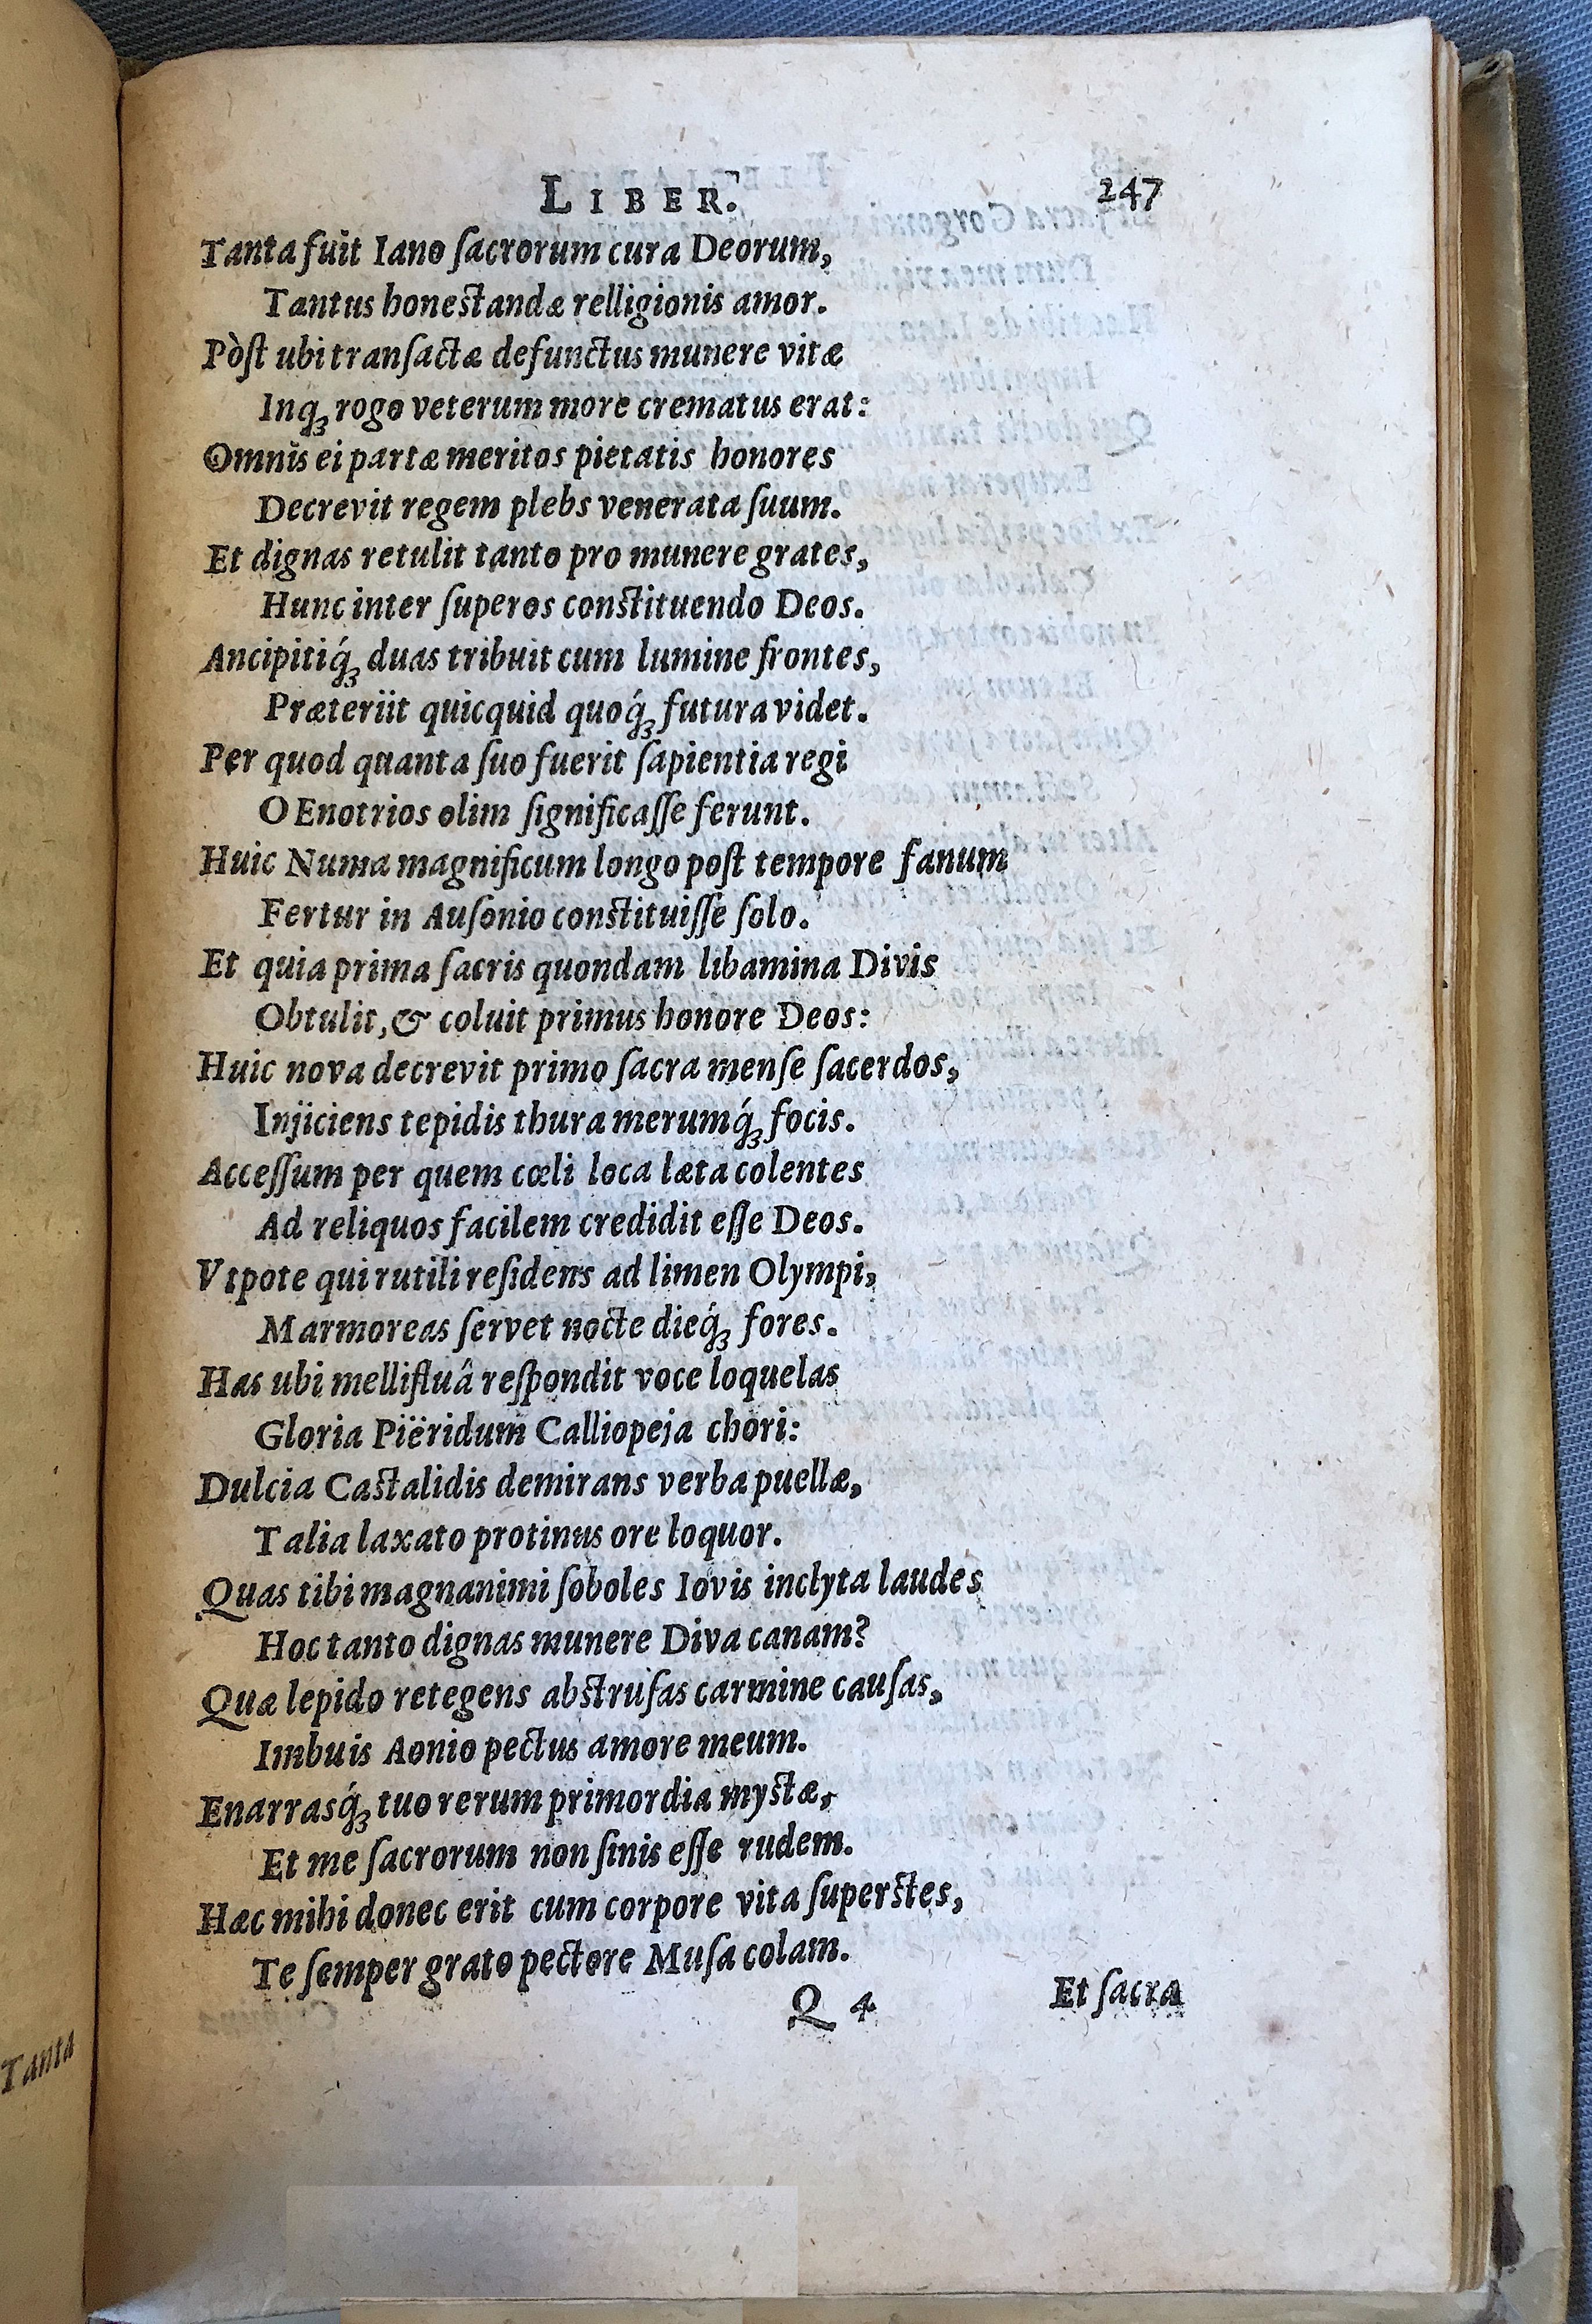 LIBER. 247
Tanta fuit Iano ſacrorum cura Deorum,
Tantus honeſtandæ relligionis amor.
Pòſt ubi tranſactæ defunctus munere vitæ
Inq́ꝫ rogo veterum more crematus erat:
Omnis ei partæ meritos pietatis honores
Decrevit regem plebs venerata ſuum.
Et dignas retulit tanto pro munere grates,
Hunc inter ſuperos conſtituendo Deos.
Ancipitiq́ꝫ duas tribuit cum lumine frontes,
Præteriit quicquid quoq́ꝫ futura videt.
Per quod quanta ſuo fuerit ſapientia regi
OEnotrios olim ſignificaſſe ferunt.
Huic Numa magnificum longo poſt tempore fanum
Fertur in Auſonio conſtituiſſe ſolo.
Et quia prima ſacris quondam libamina Divis
Obtulit, & coluit primus honore Deos:
Huic nova decrevit primo ſacra menſe ſacerdos,
Injiciens tepidis thura merumq́ꝫ focis.
Acceſſum per quem cœli loca læta colentes
Ad reliquos facilem credidit eſſe Deos.
Vtpote qui rutili reſidens ad limen Olympi,
Marmoreas ſervet nocte dieq́ꝫ fores.
Has ubi mellifluâ reſpondit voce loquelas
Gloria Piëridum Calliopeja chori:
Dulcia Caſtalidis demirans verba puellæ,
Talia laxato protinus ore loquor.
Quas tibi magnanimi ſoboles Iovis inclyta laudes
Hoc tanto dignas munere Diva canam?
Quæ lepido retegens abſtruſas carmine cauſas,
Imbuis Aonio pectus amore meum.
Enarrasq́ꝫ tuo rerum primordia myſtæ,
Et me ſacrorum non ſinis eſſe rudem.
Hæc mihi donec erit cum corpore vita ſuperſtes,
Te ſemper grato pectore Muſa colam.
Q 4 Et ſacra
Tanta